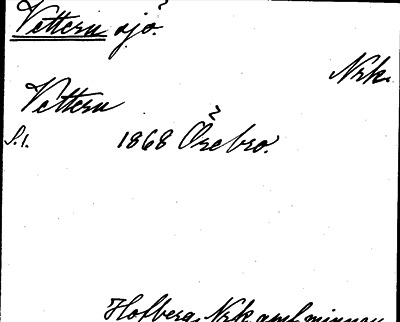 Vettern sjö.
Nrk.
Vettern
S. 1. 1868 Örebro.
Hofberg, Nrk gamla minnen